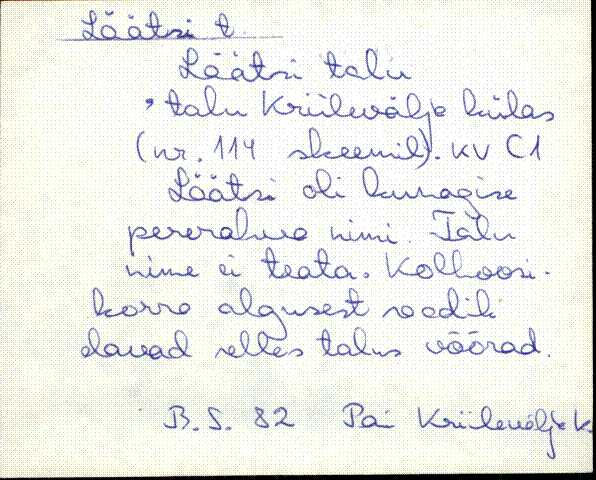 Läätsi t.
Läätsi talu
talu Kriilevälja külas
(nr. 114 skeemil). KV C1
Läätsi oli kunagise
pererahva nimi. Talu
nime ei teata. Kolhoosi-
korra algusest saadik
elavad selles talus võõrad.
B. S. 82 Pai Kriilevälja k.